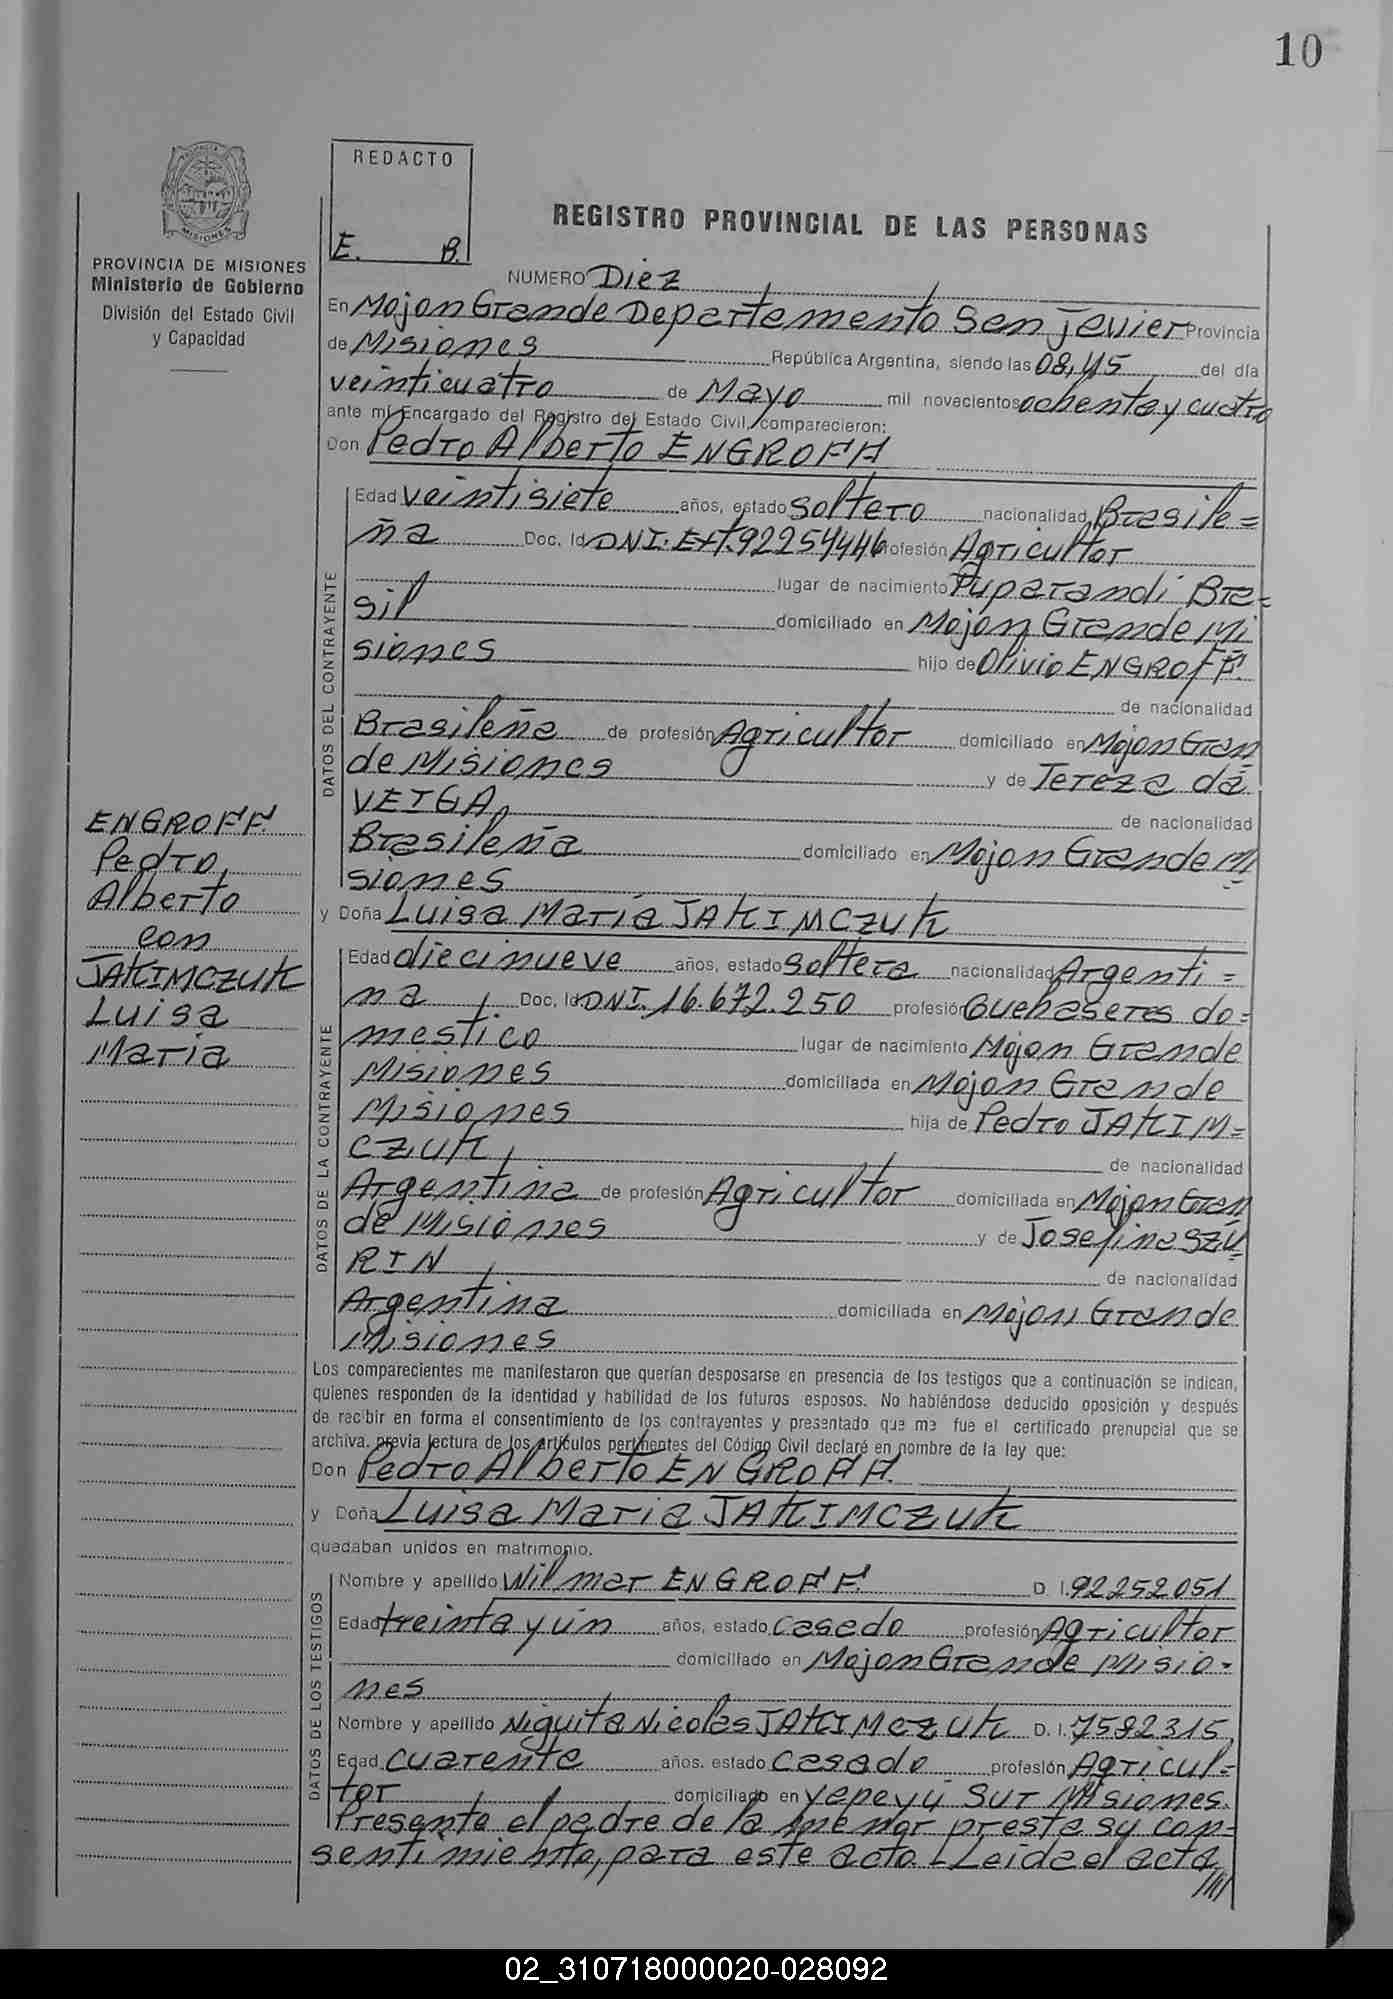 10
REDACTO
E. B.
MISIONES
PROVINCIA DE MISIONES
Ministerio de Gobierno
División del Estado Civil
y Capacidad
REGISTRO PROVINCIAL DE LAS PERSONAS
NUMERO Diez
En Mojon Grande Departamento San Javier Provincia
de Misiones República Argentina, siendo las 08,45 del día
veinticuatro de Mayo mil novecientos ochenta y cuatro
ante mí Encargado del Registro del Estado Civil, comparecieron:
Don Pedro Alberto ENGROFF
DATOS DEL CONTRAYENTE
Edad veintisiete años, estado soltero nacionalidad Brasile=
ña Doc. Id DNI. Ext. 92254446 profesión Agricultor
lugar de nacimiento Puparandi, Bra=
sil domiciliado en Mojón Grande Mi
siones hijo de Olivio ENGROFF.
de nacionalidad
Brasileña de profesión Agricultor domiciliado en Mojon Gran
de Misiones y de Tereza da
VEIGA, de nacionalidad
Brasileña domiciliado en Mojon Grande Mi
siones
ENGROFF
Pedro,
Alberto
con
JAKIMCZUK
Luisa
Maria
y Doña Luisa María JAKIMCZUK
DATOS DE LA CONTRAYENTE
Edad diecinueve años, estado soltera nacionalidad Argenti=
na Doc. Id DNI. 16.672.250 profesión Quehaseres do=
mestico lugar de nacimiento Mojon Grande
Misiones domiciliada en Mojon Grande
Misiones hija de Pedro JAKIM=
CZUK, de nacionalidad
Argentina de profesión Agricultor domiciliada en Mojon Gran
de Misiones y de Josefina SZU
RIN, de nacionalidad
Argentina domiciliada en Mojon Grande
Misiones
Los comparecientes me manifestaron que querían desposarse en presencia de los testigos que a continuación se indican,
quienes responden de la identidad y habilidad de los futuros esposos. No habiéndose deducido oposición y después
de recibir en forma el consentimiento de los contrayentes y presentado que me fue el certificado prenupcial que se
archiva, previa lectura de los artículos pertinentes del Código Civil declaré en nombre de la ley que:
Don Pedro Alberto ENGROFF.
y Doña Luisa Maria JAKIMCZUK
quedaban unidos en matrimonio.
DATOS DE LOS TESTIGOS
Nombre y apellido Wilmar ENGROFF. D. I. 92252051
Edad treinta y un años, estado casado profesión Agricultor
domiciliado en Mojon Grande Misio=
nes
Nombre y apellido Niquita Nicolas JAKIMCZUK D. I. 7582315
Edad cuarenta años, estado casado profesión Agricul=
tor domiciliado en Yapeyú Sur Misiones.
Presente el padre de la menor presta su con=
sentimiento, para este acto.- Leida el acta
////
02_310718000020-028092